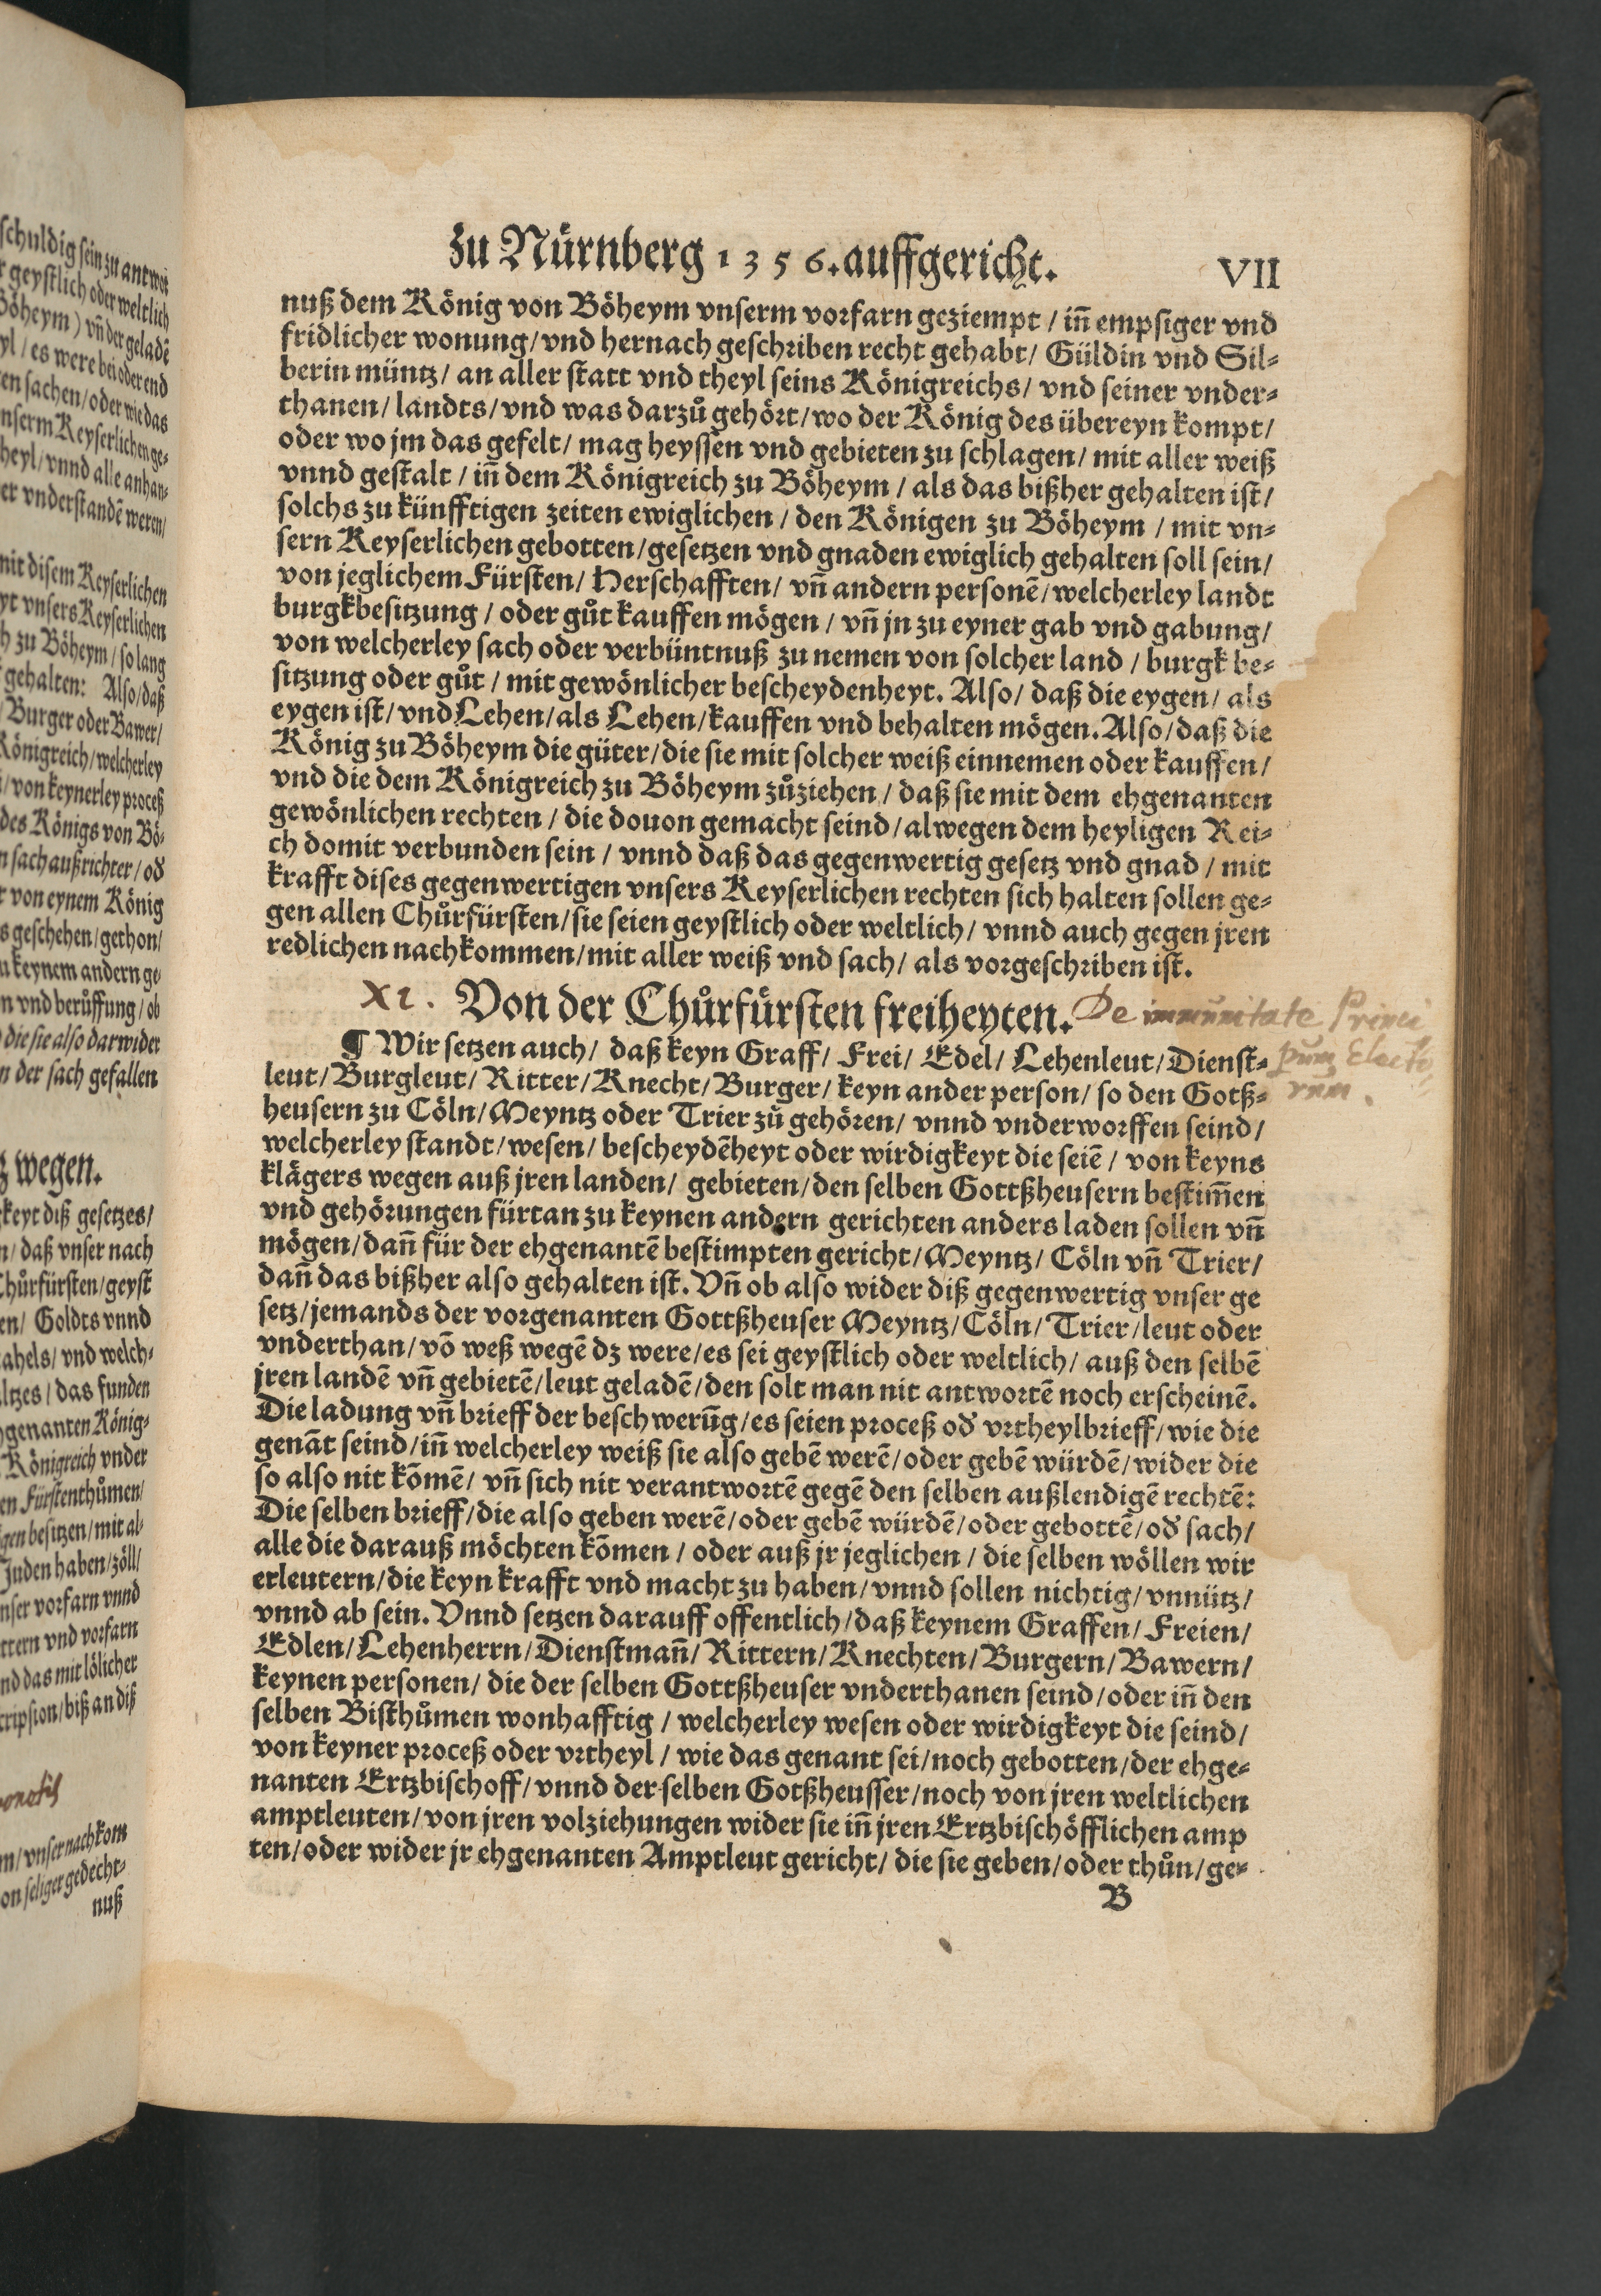 schuldig sein zu antwor
r geystlich oder weltlich
Böheym) vñ der geladẽ
yl / es were bei oder end
en sachen / oder wie das
nserm Keyserlichen ge-
heyl / vnnd alle anhan-
er vnderstandẽ weren /
mit disem Keyserlichen
yt vnsers Keyserlichen
h zu Böheym / so lang
gehalten: Also / daß
/ Burger oder Bawer /
Königreich / welcherley
/ von keynerley proceß
des Königs von Bö-
n sach außrichter / od
t von eynem König
s geschehen / gethon /
u keynem andern ge
n vnd berůffung / ob
die sie also darwider
n der sach gefallen
tz wegen.
keyt diß gesetzes /
n / daß vnser nach
Chůrfürsten / geyst
en / Goldts vnnd
ahels / vnd welch-
altzes / das funden
hgenanten König-
Königreich vnder
en Fürstenthůmen /
gen besitzen / mit al-
Juden haben / zöll /
nser vorfarn vnnd
ttern vnd vorfarn
nd das mit lölicher
cripsion / biß an diß
m / vnser nachkom
on seliger gedecht-
nuß
zu Nürnberg 1356. auffgericht. VII
nuß dem König von Böheym vnserm vorfarn geziempt / iñ empsiger vnd
fridlicher wonung / vnd hernach geschriben recht gehabt / Güldin vnd Sil-
berin müntz / an aller statt vnd theyl seins Königreichs / vnd seiner vnder-
thanen / landts / vnd was darzů gehört / wo der König des übereyn kompt /
oder wo jm das gefelt / mag heyssen vnd gebieten zu schlagen / mit aller weiß
vnnd gestalt / iñ dem Königreich zu Böheym / als das bißher gehalten ist /
solchs zu künfftigen zeiten ewiglichen / den Königen zu Böheym / mit vn-
sern Keyserlichen gebotten / gesetzen vnd gnaden ewiglich gehalten soll sein /
von jeglichem Fürsten / Herschafften / vñ andern personẽ / welcherley landt
burgkbesitzung / oder gůt kauffen mögen / vñ jn zu eyner gab vnd gabung /
von welcherley sach oder verbüntnuß zu nemen von solcher land / burgk be-
sitzung oder gůt / mit gewönlicher bescheydenheyt. Also / daß die eygen / als
eygen ist / vnd Lehen / als Lehen / kauffen vnd behalten mögen. Also / daß die
König zu Böheym die güter / die sie mit solcher weiß einnemen oder kauffen /
vnd die dem Königreich zu Böheym zůziehen / daß sie mit dem ehgenanten
gewönlichen rechten / die douon gemacht seind / alwegen dem heyligen Rei-
ch domit verbunden sein / vnnd daß das gegenwertig gesetz vnd gnad / mit
krafft dises gegenwertigen vnsers Keyserlichen rechten sich halten sollen ge-
gen allen Chůrfürsten / sie seien geystlich oder weltlich / vnnd auch gegen jren
redlichen nachkommen / mit aller weiß vnd sach / als vorgeschriben ist.
XI. Von der Chůrfürsten freiheyten. De immunitate Princi
pum Electo
rum.
¶ Wir setzen auch / daß keyn Graff / Frei / Edel / Lehenleut / Dienst-
leut / Burgleut / Ritter / Knecht / Burger / keyn ander person / so den Gotß-
heusern zu Cöln / Meyntz oder Trier zů gehören / vnnd vnderworffen seind /
welcherley standt / wesen / bescheydẽheyt oder wirdigkeyt die seiẽ / von keyns
klägers wegen auß jren landen / gebieten / den selben Gottßheusern bestim̃en
vnd gehörungen fürtan zu keynen andern gerichten anders laden sollen vñ
mögen / dañ für der ehgenantẽ bestimpten gericht / Meyntz / Cöln vñ Trier /
dañ das bißher also gehalten ist. Vñ ob also wider diß gegenwertig vnser ge
setz / jemands der vorgenanten Gottßheuser Meyntz / Cöln / Trier / leut oder
vnderthan / võ weß wegẽ dz were / es sei geystlich oder weltlich / auß den selbẽ
jren landẽ vñ gebietẽ / leut geladẽ / den solt man nit antwortẽ noch erscheinẽ.
Die ladung vñ brieff der beschwerũg / es seien proceß od vrtheylbrieff / wie die
genãt seind / iñ welcherley weiß sie also gebẽ werẽ / oder gebẽ würdẽ / wider die
so also nit kõmẽ / vñ sich nit verantwortẽ gegẽ den selben außlendigẽ rechtẽ:
Die selben brieff / die also geben werẽ / oder gebẽ würdẽ / oder gebottẽ / od sach /
alle die darauß möchten kõmen / oder auß jr jeglichen / die selben wöllen wir
erleutern / die keyn krafft vnd macht zu haben / vnnd sollen nichtig / vnnütz /
vnnd ab sein. Vnnd setzen darauff offentlich / daß keynem Graffen / Freien /
Edlen / Lehenherrn / Dienstmañ / Rittern / Knechten / Burgern / Bawern /
keynen personen / die der selben Gottßheuser vnderthanen seind / oder iñ den
selben Bisthůmen wonhafftig / welcherley wesen oder wirdigkeyt die seind /
von keyner proceß oder vrtheyl / wie das genant sei / noch gebotten / der ehge-
nanten Ertzbischoff / vnnd der selben Gotßheusser / noch von jren weltlichen
amptleuten / von jren volziehungen wider sie iñ jren Ertzbischöfflichen amp
ten / oder wider jr ehgenanten Amptleut gericht / die sie geben / oder thůn / ge-
B